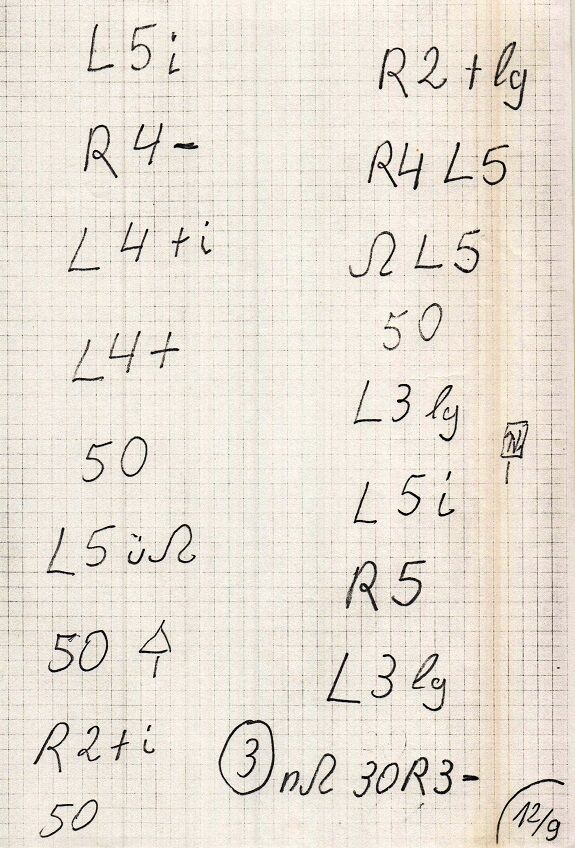 L5i
R4-
L4+i
L4+
50
L5üΩ
50
R2+i
50
R2+lg
R4 L5
Ω L5
50
L3 lg
L5i
R5
L3 lg
3 nΩ 30R3-
12/9